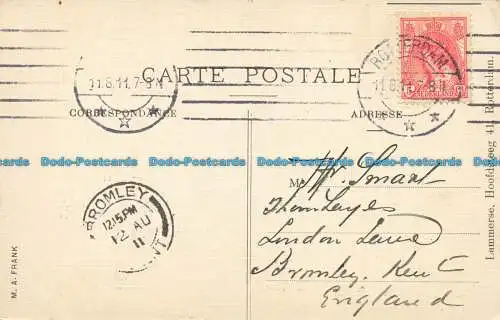 11.8.11.7-8N
CARTE POSTALE
CORRESPONDANCE
ADRESSE
ROTTERDAM
11.8.11.7-8N
NEDERLAND
Dodo-Postcards Dodo-Postcards Dodo-Postcards Dodo-Postcards Dodo-Postcards
M
Mr. Smart
London Lane
Bromley. Kent
England
BROMLEY
12.15.PM
12 AU
11
KENT
M. A. FRANK
Lammerse, Hoofdsteeg 41, Rotterdam.